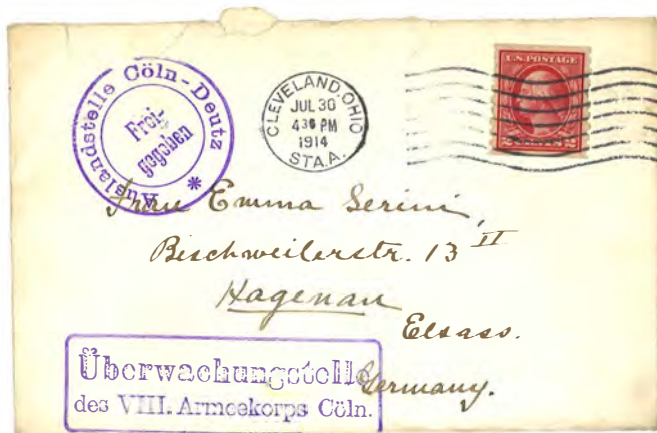 Auslandstelle Cöln-Deutz
Frei-
gegeben
*
CLEVELAND, OHIO
JUL 30
4 30 PM
1914
STA. A.
U.S. POSTAGE
2 CENTS 2
Frau Emma Serini,
Bischweilerstr. 13 II
Hagenau
Elsass.
Germany.
Überwachungstelle
des VIII. Armeekorps Cöln.